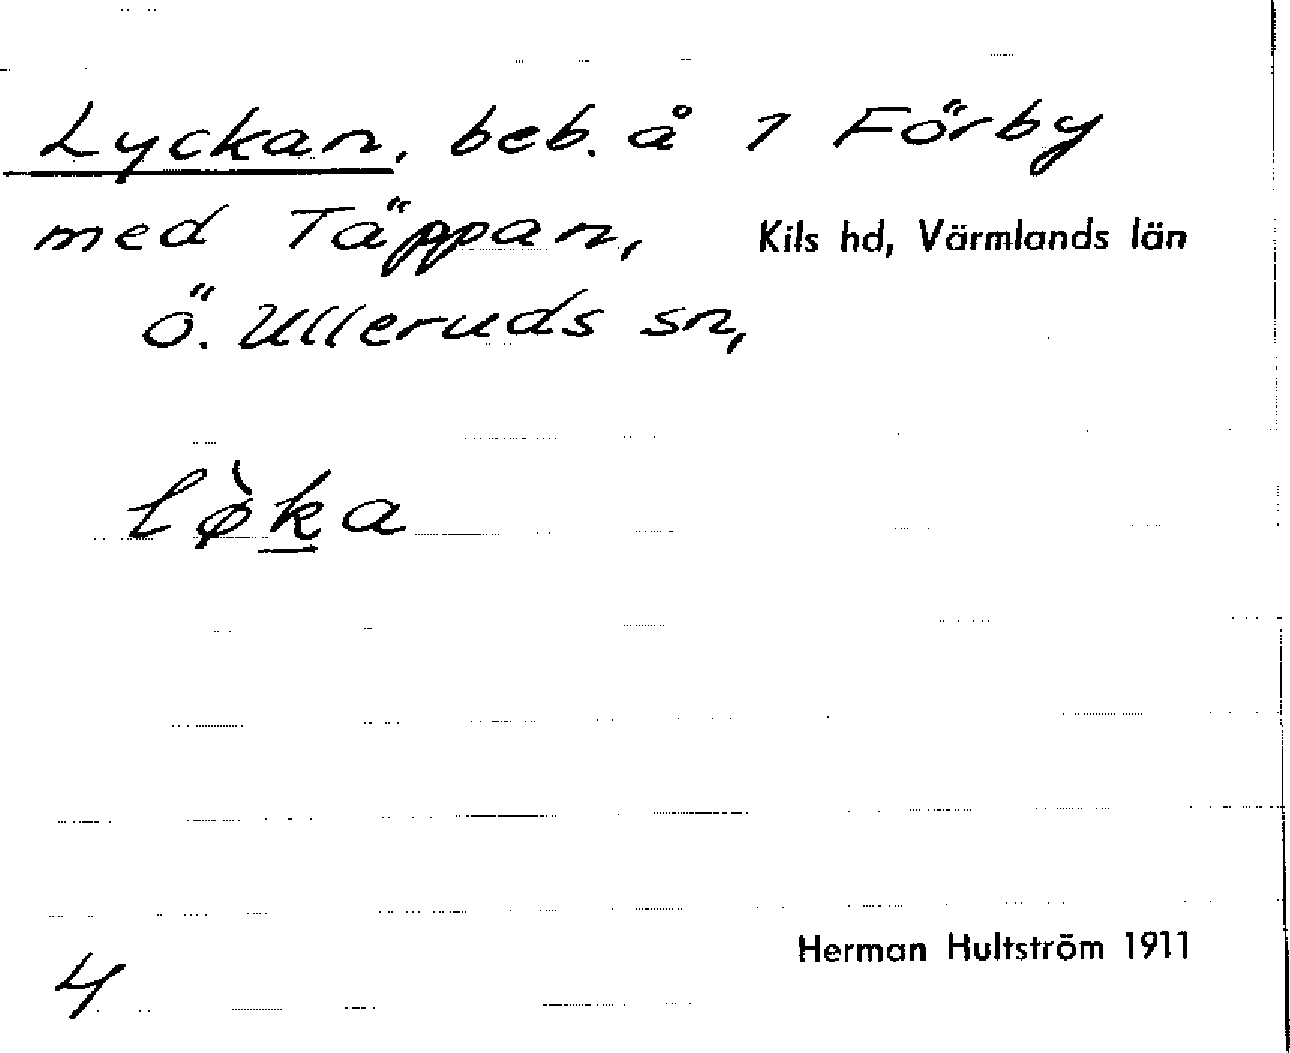 Lyckan, beb. å 1 Förby
med Täppan, Kils hd, Värmlands län
Ö. Ulleruds sn,
lø̀ka
Herman Hultström 1911
4